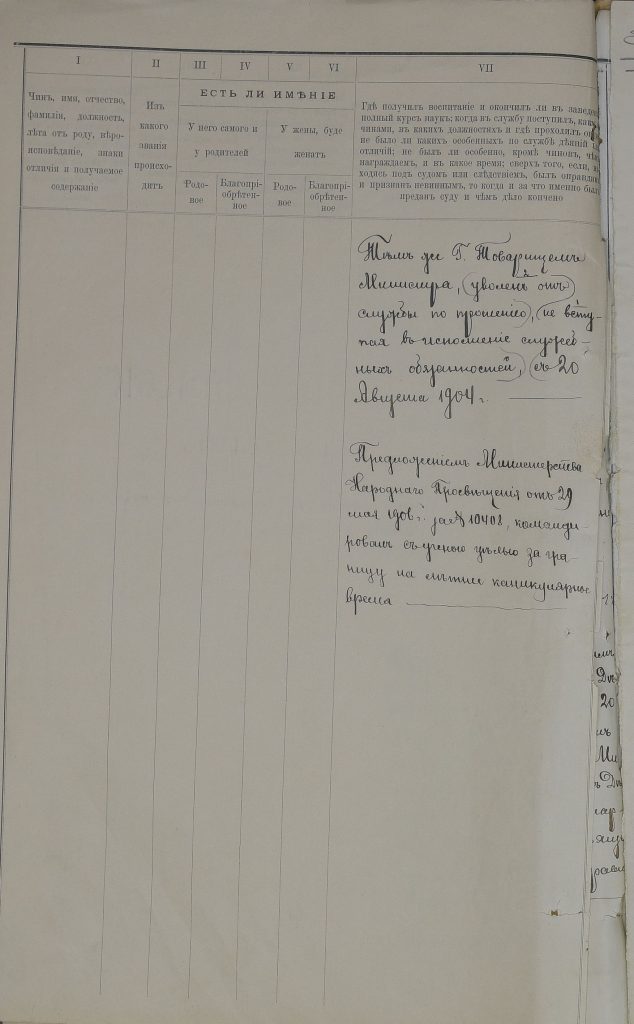 I
II
III
IV
V
VI
VII
Чинъ, имя, отчество,
фамилія, должность,
лѣта отъ роду, вѣро-
исповѣданіе, знаки
отличія и получаемое
содержаніе
Изъ
какого
званія
происхо-
дитъ
ЕСТЬ ЛИ ИМѢНІЕ
У него самого и
у родителей
У жены, буде
женатъ
Родо-
вое
Благопрі-
обрѣтен-
ное
Родо-
вое
Благопрі-
обрѣтен-
ное
Гдѣ получилъ воспитаніе и окончилъ ли въ заведе
полный курсъ наукъ; когда въ службу поступилъ, как
чинами, въ какихъ должностяхъ и гдѣ проходилъ он
не было ли какихъ особенныхъ по службѣ дѣяній
отличій; не былъ ли особенно, кромѣ чиновъ, чѣ
награждаемъ, и въ какое время; сверхъ того, если,
ходясь подъ судомъ или слѣдствіемъ, былъ оправдан
и признанъ невиннымъ, то когда и за что именно был
преданъ суду и чѣмъ дѣло кончено
Тѣмъ же Г. Товарищемъ
Министра, (уволенъ отъ)
службы по прошенію), (не всту-
пая въ исполненіе служеб-
ныхъ обязанностей), (съ 20
Августа 1904 г.
Предложеніемъ Министерства
Народнаго Просвѣщенія отъ 29
мая 1906 г. за № 10408, команди-
рованъ съ ученою цѣлью за гра-
ницу на лѣтнее каникулярное
время
20